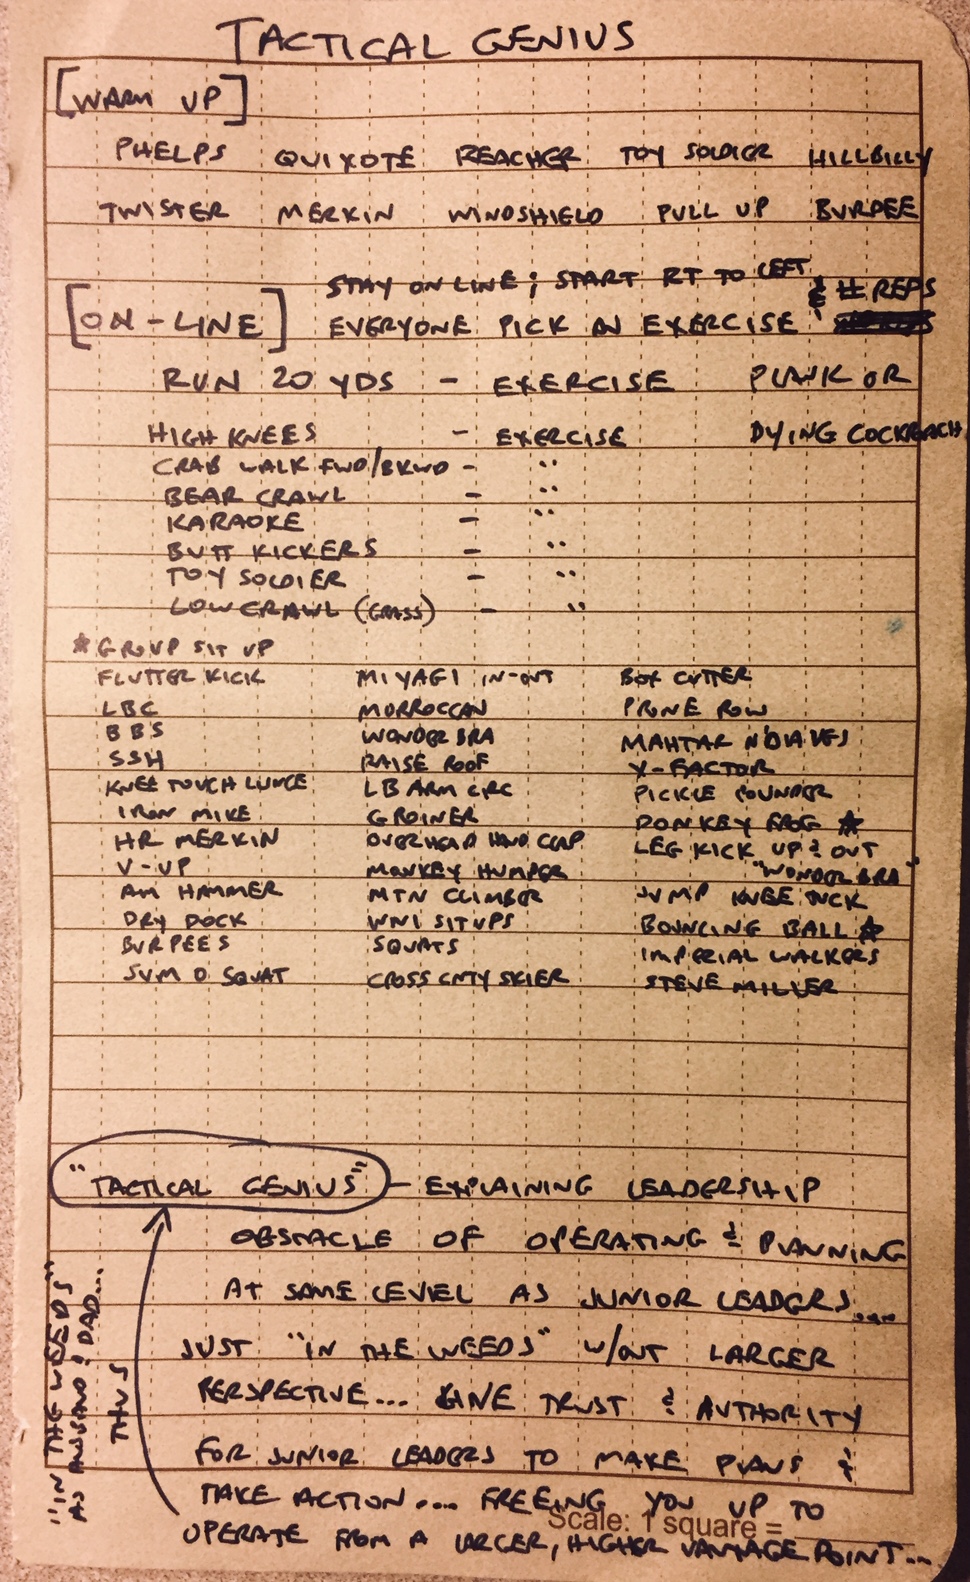 TACTICAL GENIUS
[WARM UP]
PHELPS QUIXOTE REACHER TOY SOLDIER HILLBILLY
TWISTER MERKIN WINDSHIELD PULL UP BURPEE
STAY ON LINE; START RT TO LEFT
& # REPS
[ON-LINE] EVERYONE PICK AN EXERCISE
RUN 20 YDS - EXERCISE PLANK OR
HIGH KNEES - EXERCISE DYING COCKROACH
CRAB WALK FWD/BKWD - "
BEAR CRAWL - "
KARAOKE - "
BUTT KICKERS - "
TOY SOLDIER - "
LOW CRAWL (GRASS) - "
* GROUP SIT UP
FLUTTER KICK MIYAGI IN-OUT BOX CUTTER
LBC MORROCCAN PRONE ROW
BBS WONDER BRA MAHTAR N'DIAYES
SSH RAISE ROOF X-FACTOR
KNEE TOUCH LUNGE LB ARM CIRC PICKLE POUNDER
IRON MIKE GROINER DONKEY FROG *
HR MERKIN OVERHEAD HAND CLAP LEG KICK UP & OUT
V-UP MONKEY HUMPER "WONDER BRA"
AM HAMMER MTN CLIMBER JUMP KNEE TUCK
DRY DOCK WWI SITUPS BOUNCING BALL *
BURPEES SQUATS IMPERIAL WALKERS
SUMO SQUAT CROSS CNTY SKIER STEVE MILLER
"TACTICAL GENIUS" - EXPLAINING LEADERSHIP
OBSTACLE OF OPERATING & PLANNING
AT SAME LEVEL AS JUNIOR LEADERS....
JUST "IN THE WEEDS" W/OUT LARGER
PERSPECTIVE... GIVE TRUST & AUTHORITY
FOR JUNIOR LEADERS TO MAKE PLANS &
TAKE ACTION.... FREEING YOU UP TO
OPERATE FROM A LARGER, HIGHER VANTAGE POINT...
Scale: 1 square =
"IN THE WEEDS"
AS HUSBAND & DAD...
THUS